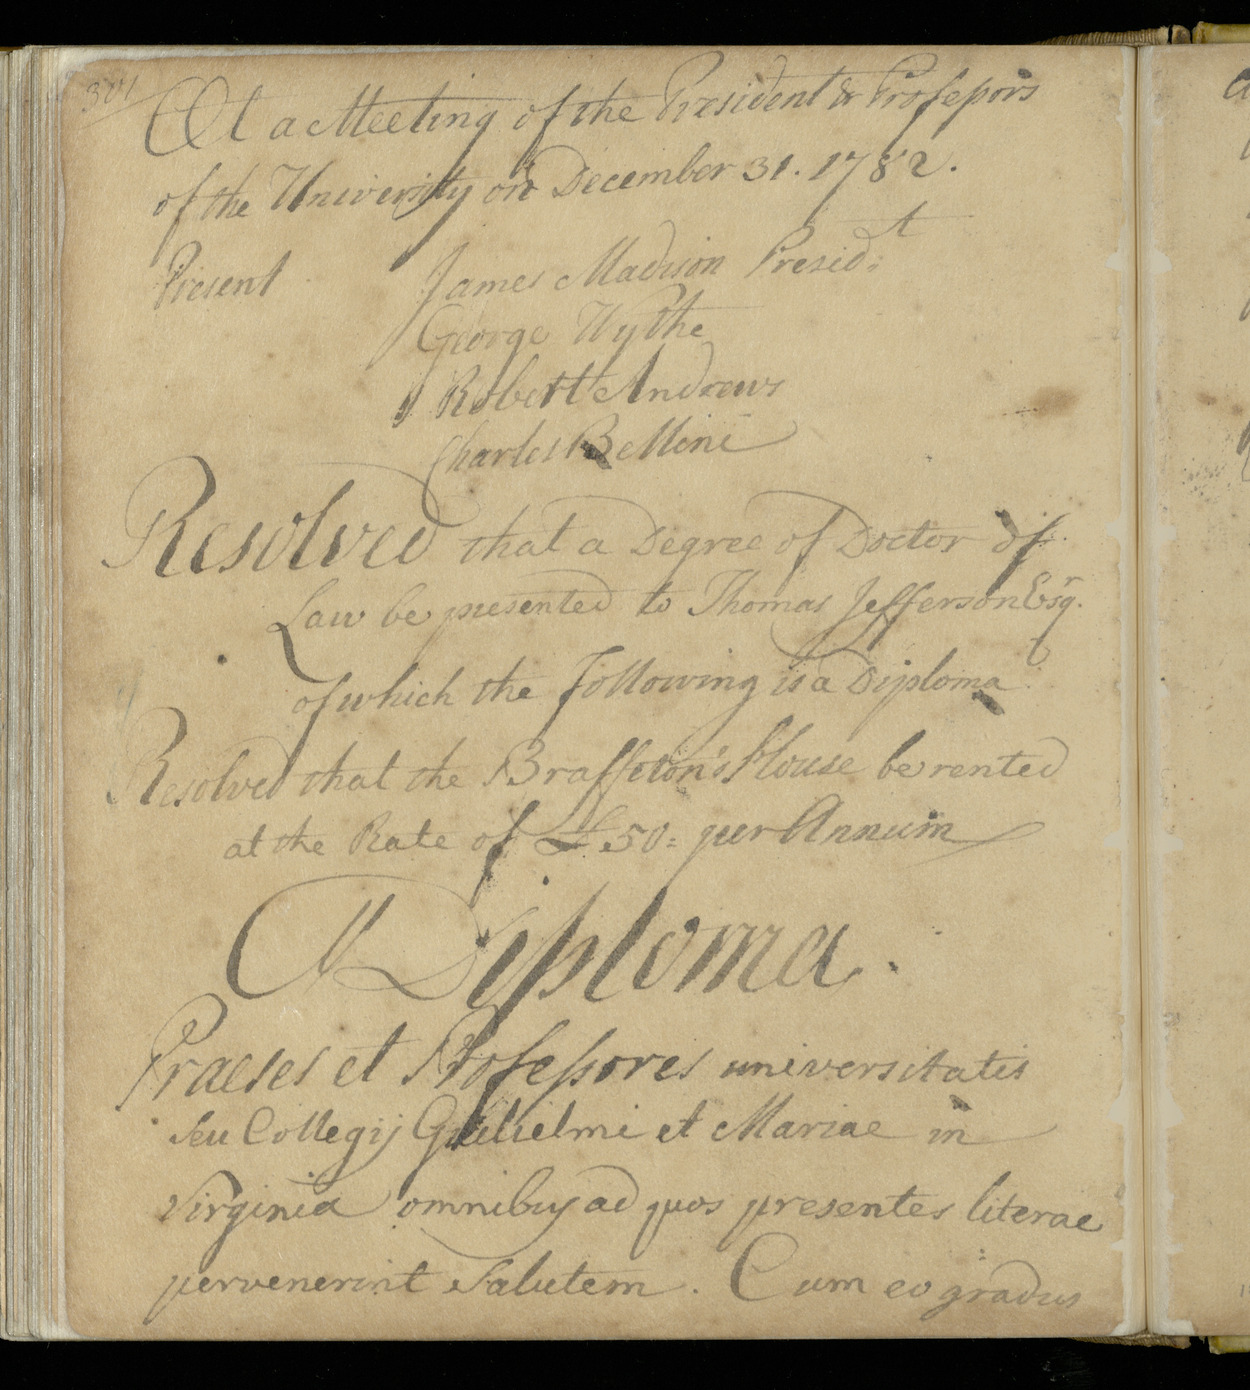 At a Meeting of the President & Professors
of the University on December 31. 1782.
Present James Madison Presid.t
George Wythe
Robert Andrews
Charles Bellini
Resolved that a Degree of Doctor of
Law be presented to Thomas Jefferson Esqr.
of which the following is a Diploma
Resolved that the Brafferton's House be rented
at the Rate of £50: per Annum
Diploma.
Praeses et Professores universitatis
seu Collegij Gulielmi et Mariae in
Virginia omnibus ad quos presentes literae
pervenerint Salutem. Cum eo gradus